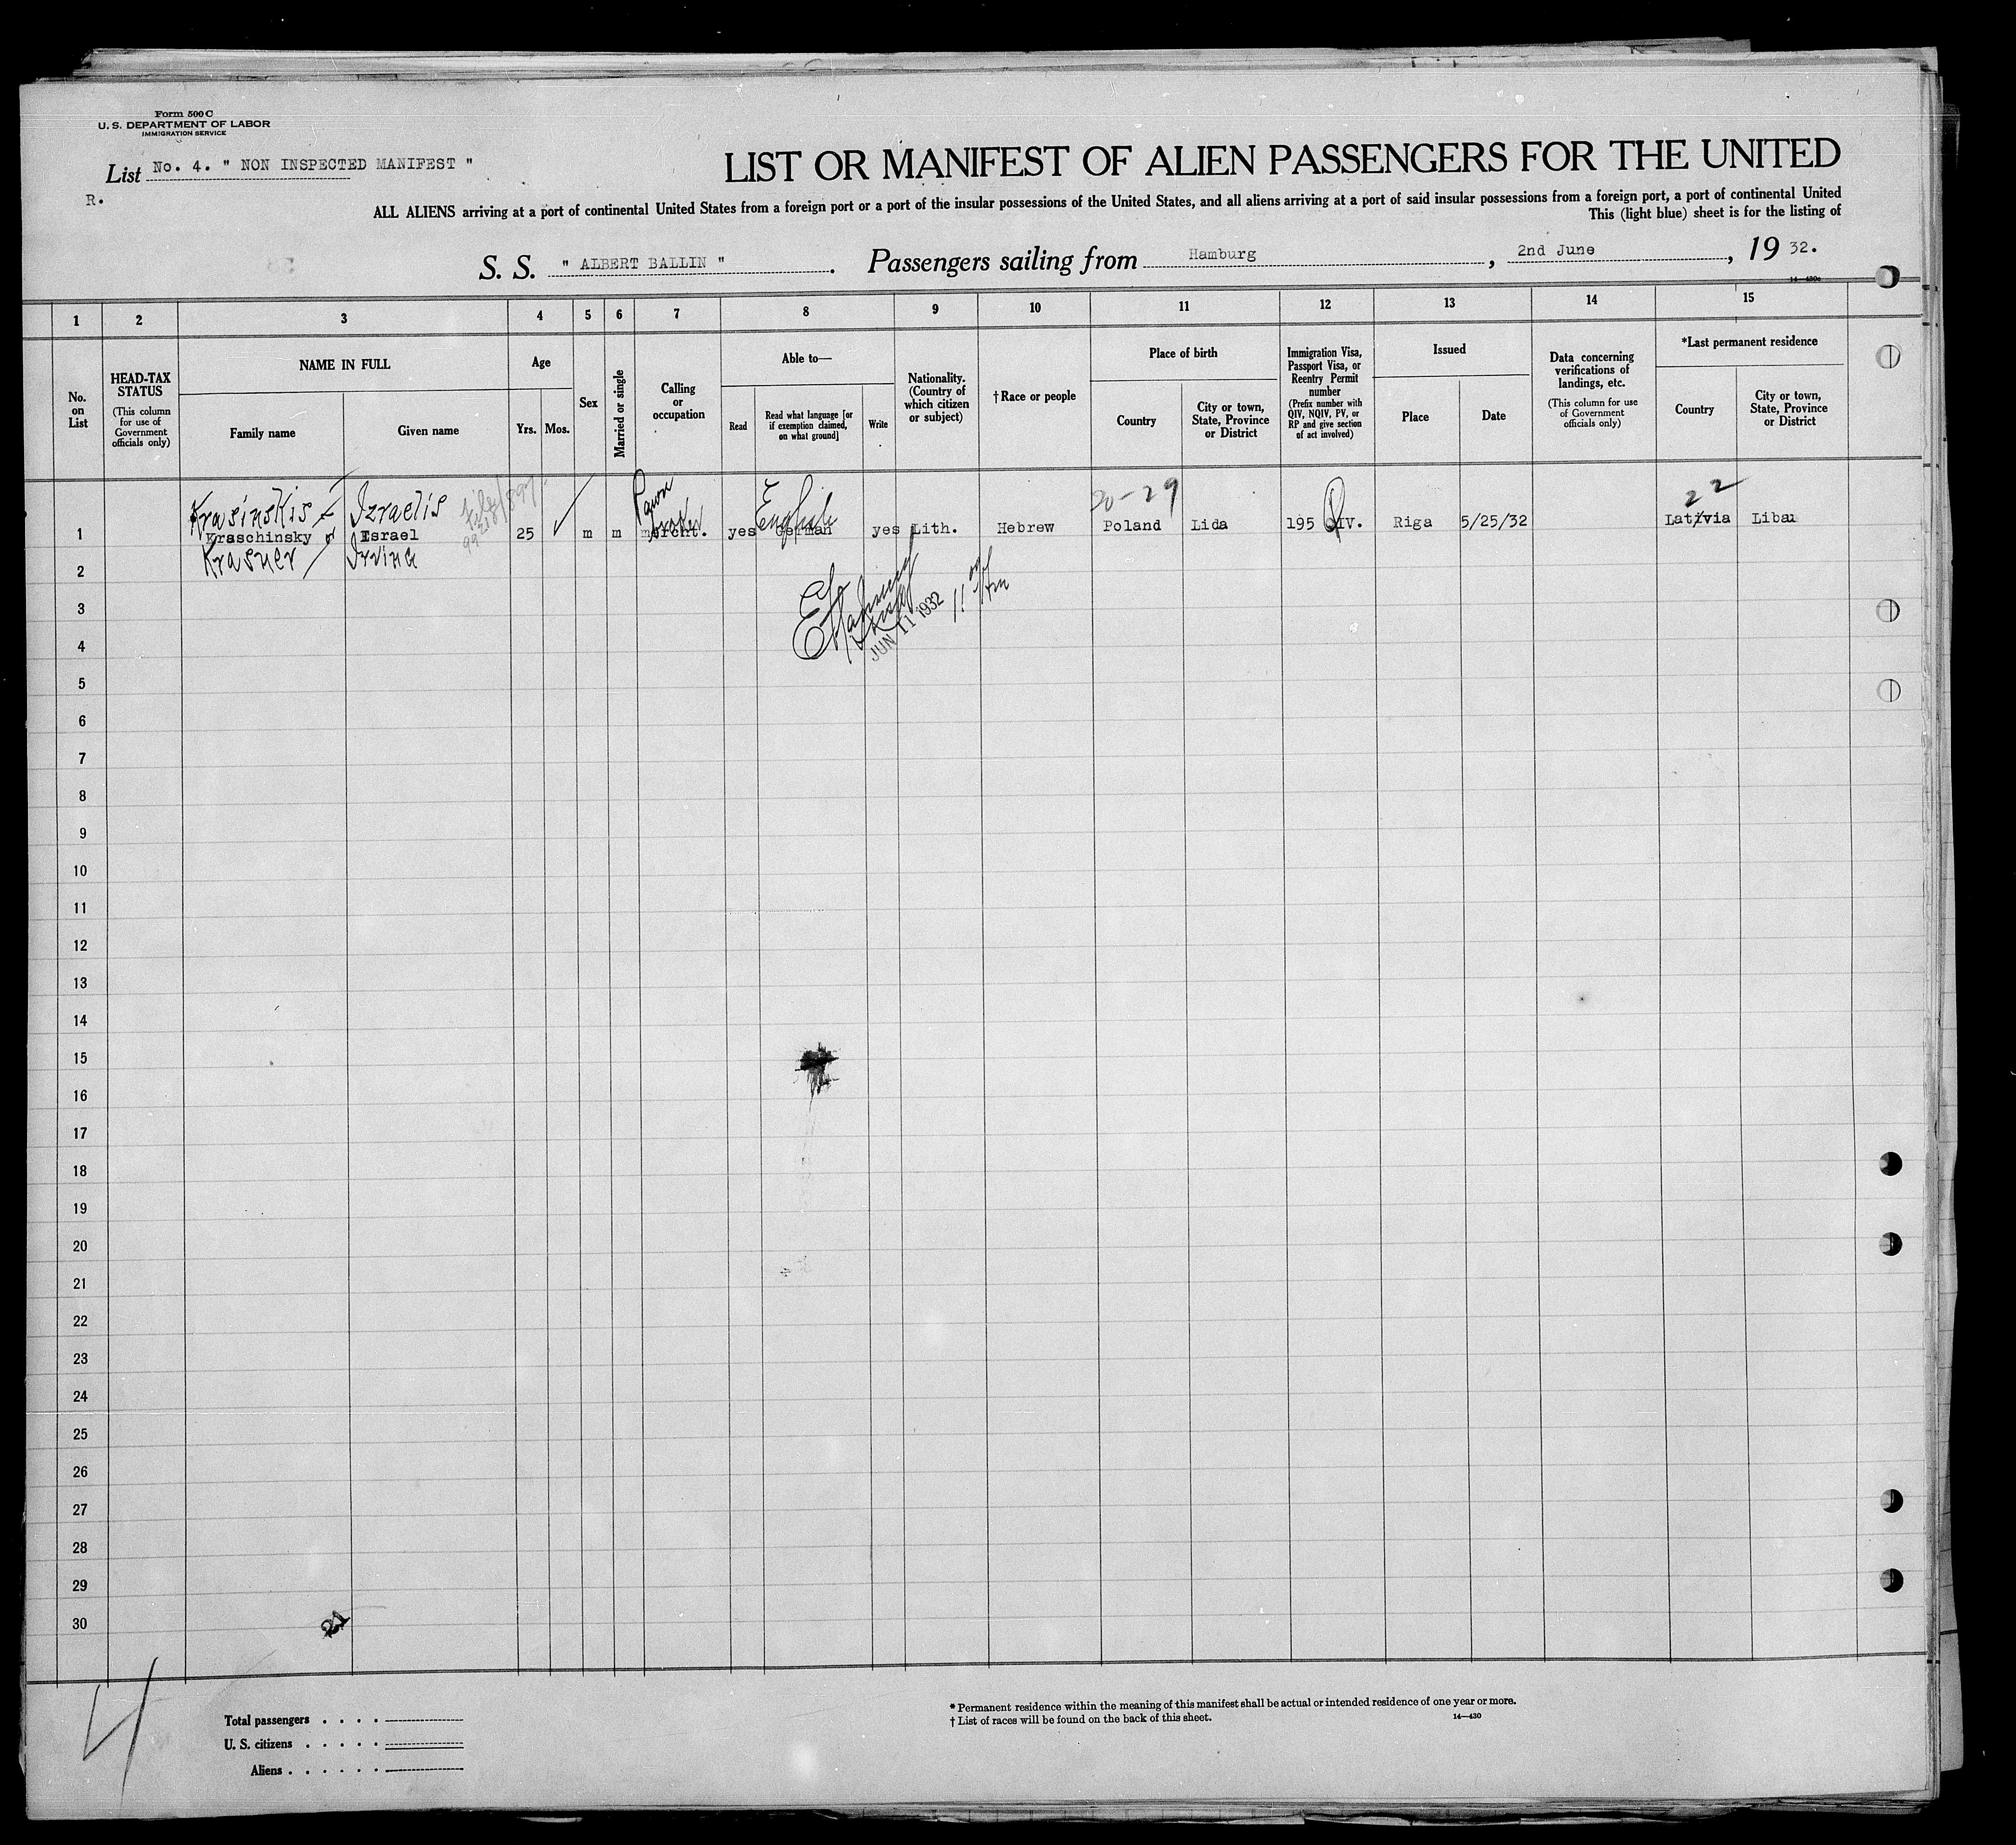 Form 500 C
U. S. DEPARTMENT OF LABOR
IMMIGRATION SERVICE
List No. 4. " NON INSPECTED MANIFEST "
R.
LIST OR MANIFEST OF ALIEN PASSENGERS FOR THE UNITED
ALL ALIENS arriving at a port of continental United States from a foreign port or a port of the insular possessions of the United States, and all aliens arriving at a port of said insular possessions from a foreign port, a port of continental United
This (light blue) sheet is for the listing of
S. S. " ALBERT BALLIN ". Passengers sailing from Hamburg, 2nd June, 19 32.
14—430c
1 2 3 4 5 6 7 8 9 10 11 12 13 14 15
No. on List
HEAD-TAX STATUS
(This column for use of Government officials only)
NAME IN FULL
Family name Given name
Age
Yrs. Mos.
Sex
Married or single
Calling or occupation
Able to—
Read
Read what language [or if exemption claimed, on what ground]
Write
Nationality. (Country of which citizen or subject)
† Race or people
Place of birth
Country
City or town, State, Province or District
Immigration Visa, Passport Visa, or Reentry Permit number
(Prefix number with QIV, NQIV, PV, or RP and give section of act involved)
Issued
Place Date
Data concerning verifications of landings, etc.
(This column for use of Government officials only)
*Last permanent residence
Country
City or town, State, Province or District
Krasinskis Izraelis Pawn English 20-29 22
1 Kraschinsky or Esrael 25 m m mercht. broker yes German yes Lith. Hebrew Poland Lida 195 QIV. Riga 5/25/32 Latvia Libau
Krasner Irving
2
3
JUN 11 1932
4
5
6
7
8
9
10
11
12
13
14
15
16
17
18
19
20
21
22
23
24
25
26
27
28
29
30
21
4
Total passengers . . . .
U. S. citizens . . . . .
Aliens . . . . . .
* Permanent residence within the meaning of this manifest shall be actual or intended residence of one year or more.
† List of races will be found on the back of this sheet.
14—430